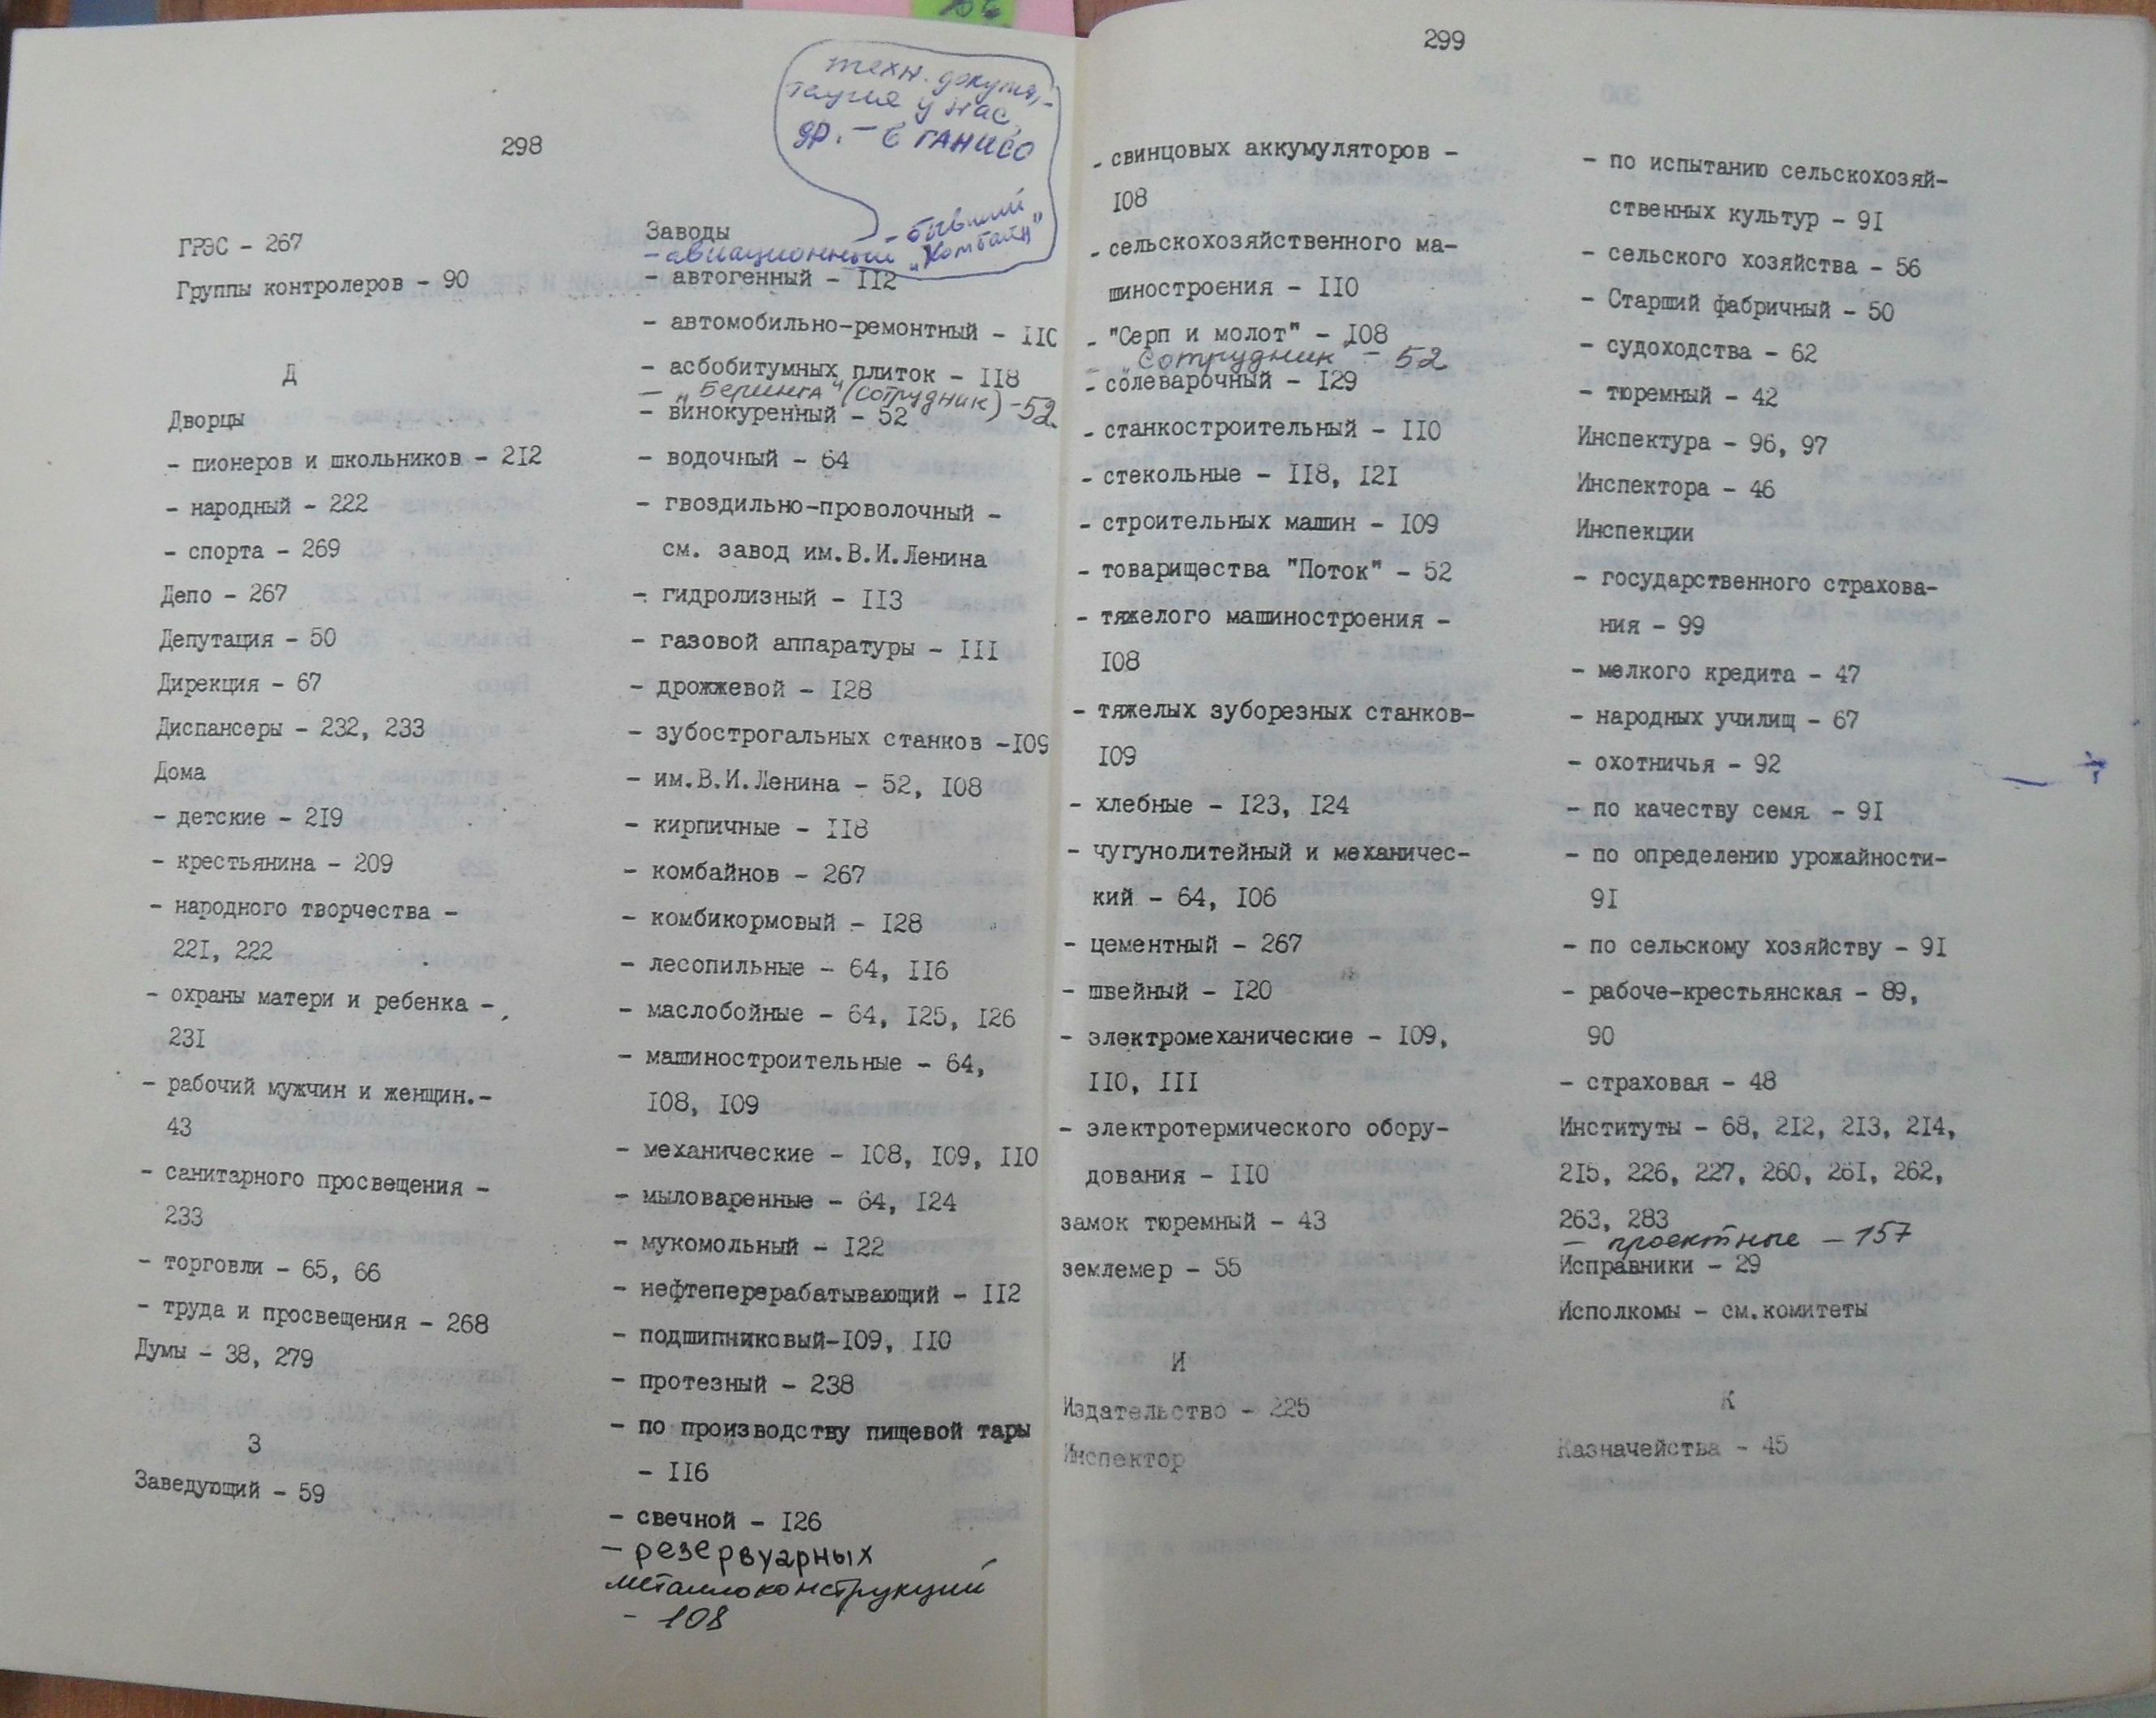 298
ГРЭС - 267
Группы контролеров - 90
Д
Дворцы
- пионеров и школьников - 212
- народный - 222
- спорта - 269
Депо - 267
Депутация - 50
Дирекция - 67
Диспансеры - 232, 233
Дома
- детские - 219
- крестьянина - 209
- народного творчества -
221, 222
- охраны матери и ребенка -
231
- рабочий мужчин и женщин.-
43
- санитарного просвещения -
233
- торговли - 65, 66
- труда и просвещения - 268
Думы - 38, 279
З
Заведующий - 59
техн. докумен-
тация у нас
др. - в ГАНИСО
Заводы
- авиационный - бывший
"Комбайн"
- автогенный - II2
- автомобильно-ремонтный - IIC
- асбобитумных плиток - II8
- "Беринга" (сотрудник) - 52
- винокуренный - 52
- водочный - 64
- гвоздильно-проволочный -
см. завод им.В.И.Ленина
- гидролизный - II3
- газовой аппаратуры - III
- дрожжевой - I28
- зубострогальных станков -I09
- им.В.И.Ленина - 52, I08
- кирпичные - II8
- комбайнов - 267
- комбикормовый - I28
- лесопильные - 64, II6
- маслобойные - 64, I25, I26
- машиностроительные - 64,
I08, I09
- механические - I08, I09, II0
- мыловаренные - 64, I24
- мукомольный - I22
- нефтеперерабатывающий - II2
- подшипниковый-I09, II0
- протезный - 238
- по производству пищевой тары
- II6
- свечной - I26
- резервуарных
металлоконструкций
- 108
299
- свинцовых аккумуляторов -
I08
- сельскохозяйственного ма-
шиностроения - II0
- "Серп и молот" - I08
- "Сотрудник - 52
- солеварочный - I29
- станкостроительный - II0
- стекольные - II8, I2I
- строительных машин - I09
- товарищества "Поток" - 52
- тяжелого машиностроения -
I08
- тяжелых зуборезных станков-
I09
- хлебные - I23, I24
- чугунолитейный и механичес-
кий - 64, I06
- цементный - 267
- швейный - I20
- электромеханические - I09,
II0, III
- электротермического обору-
дования - II0
замок тюремный - 43
землемер - 55
И
Издательство - 225
Инспектор
- по испытанию сельскохозяй-
ственных культур - 9I
- сельского хозяйства - 56
- Старший фабричный - 50
- судоходства - 62
- тюремный - 42
Инспектура - 96, 97
Инспектора - 46
Инспекции
- государственного страхова-
ния - 99
- мелкого кредита - 47
- народных училищ - 67
- охотничья - 92
- по качеству семя. - 9I
- по определению урожайности-
9I
- по сельскому хозяйству - 9I
- рабоче-крестьянская - 89,
90
- страховая - 48
Институты - 68, 2I2, 2I3, 2I4,
2I5, 226, 227, 260, 26I, 262,
263, 283
- проектные - 157
Исправники - 29
Исполкомы - см.комитеты
К
Казначейства - 45